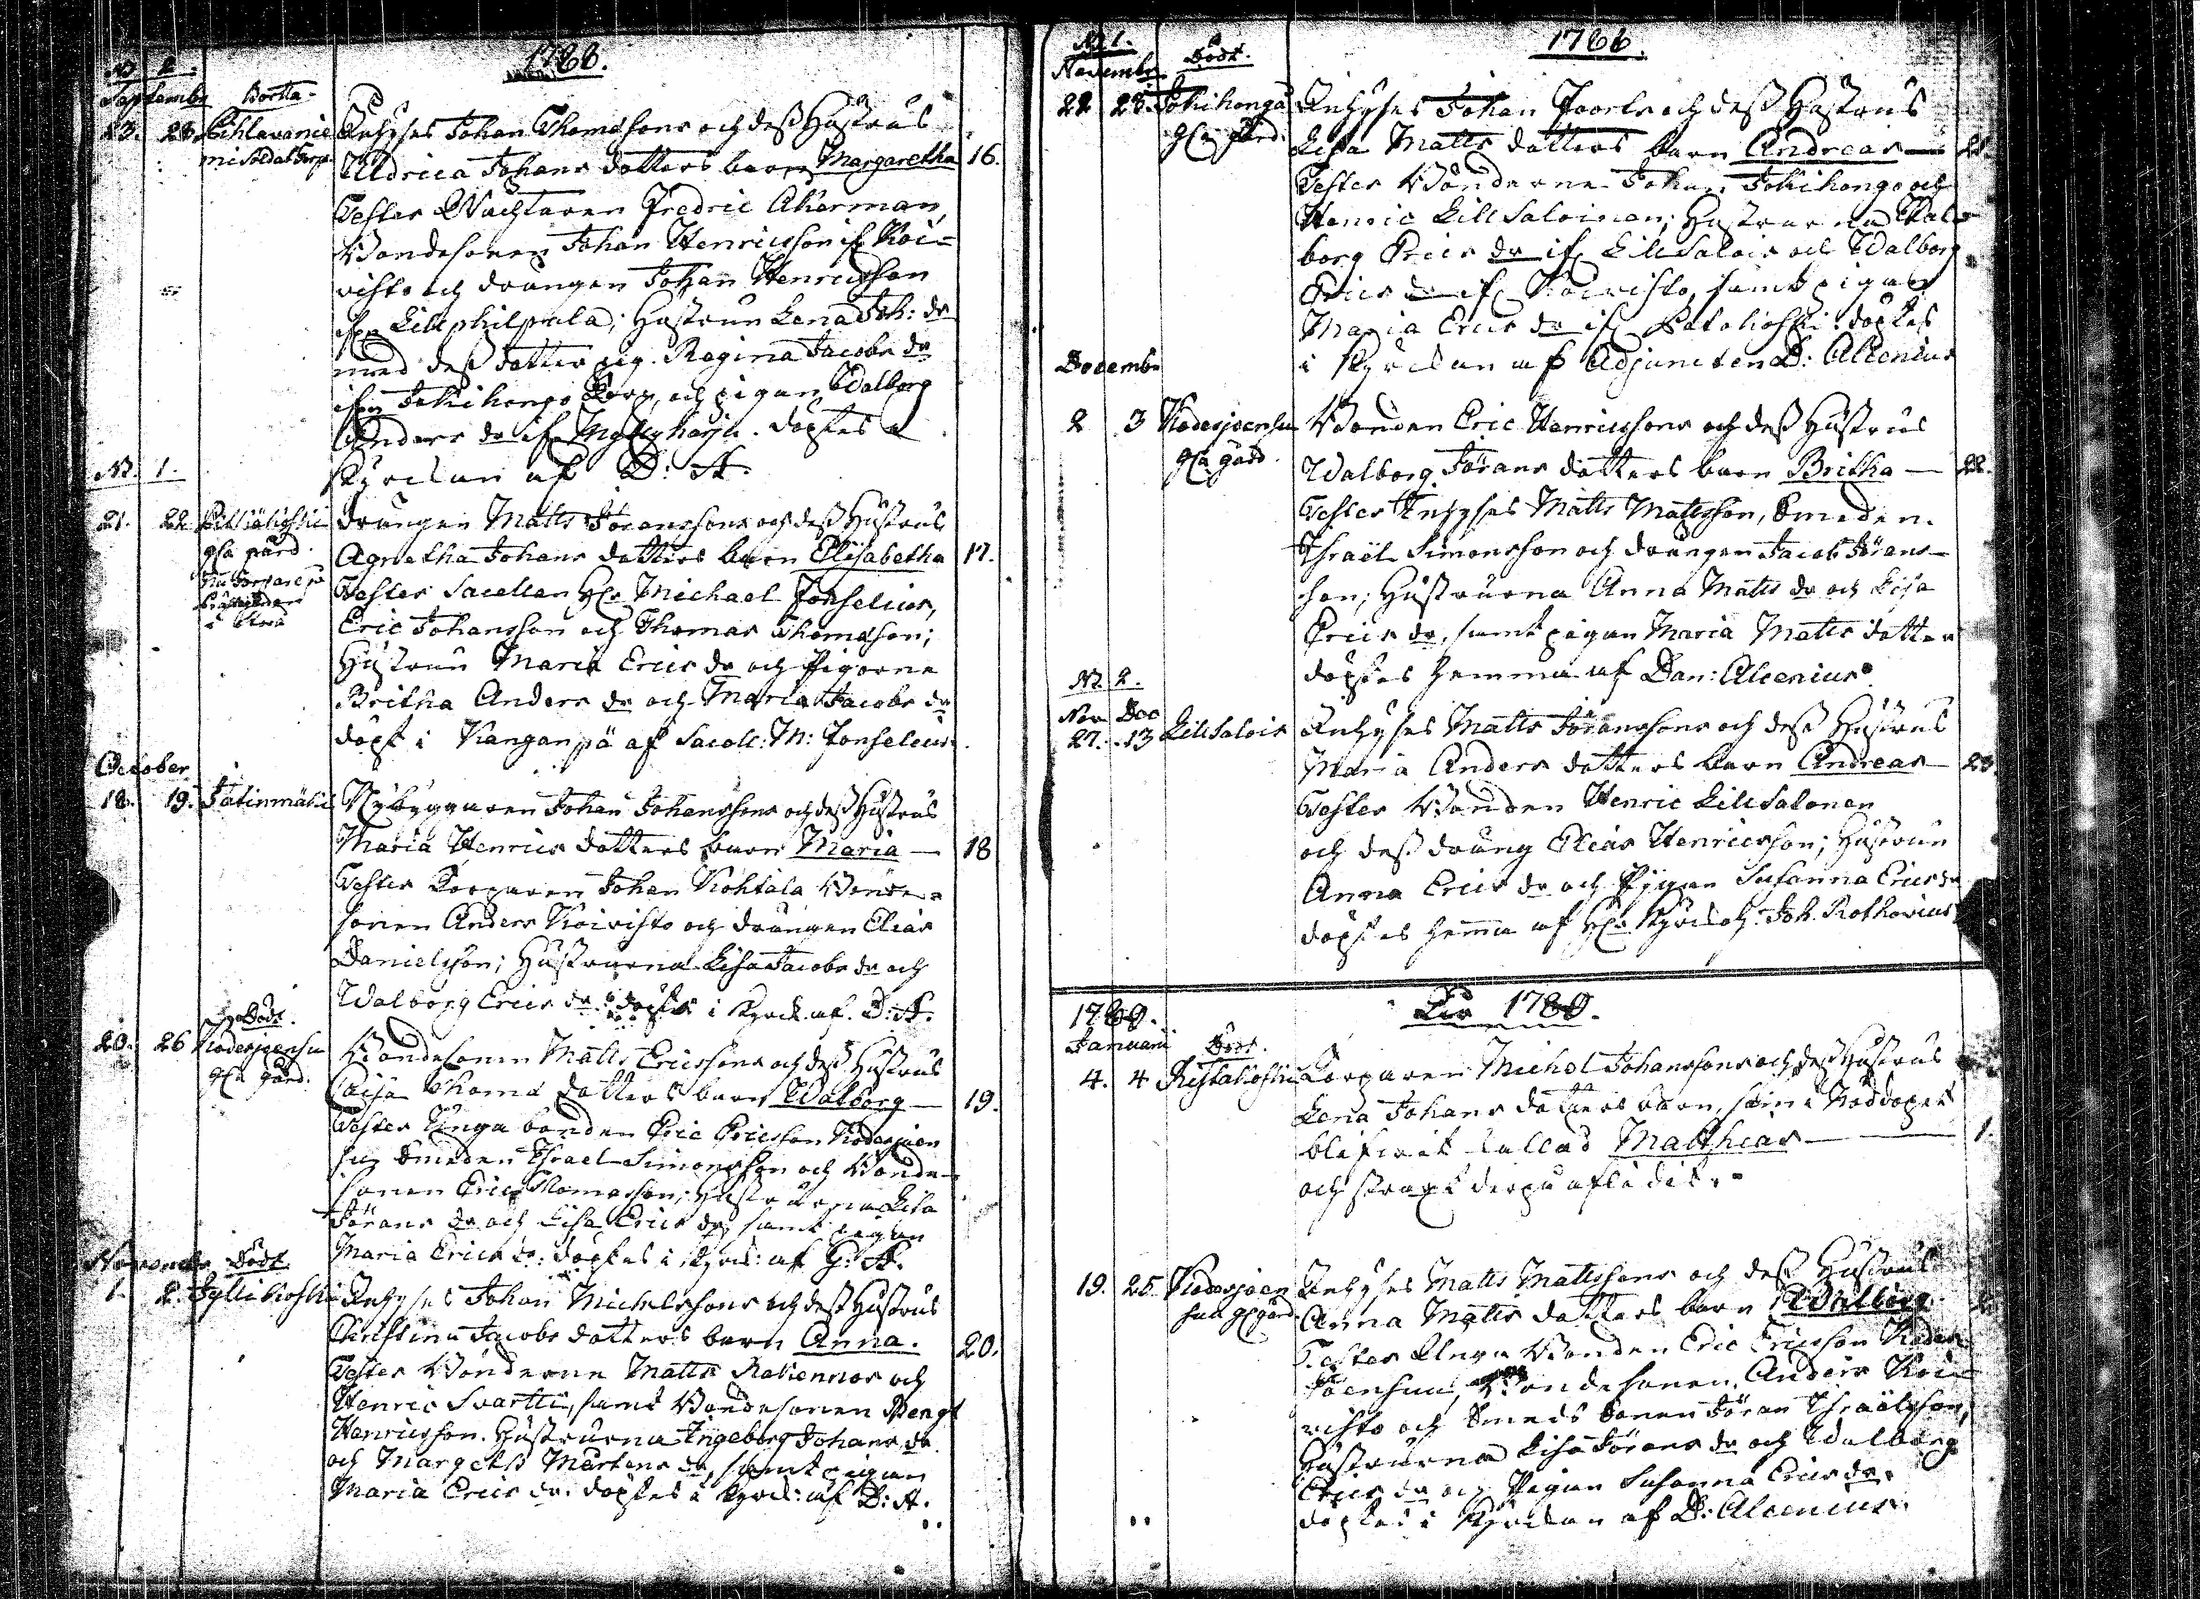 1788.
Septembr Bortta.
23. 28. Pihlavanie Inhyses Johan Thomæsons och dess Hustrus
mi Soldat Torp. Uldrica Johans dotters barn Margaretha 16.
Tester Wachtaren Fredric Åkerman,
Bondesonen Johan Henricsson if. Koi-
visto och drängen Johan Henricsson
ifrån Lillphilpula; Hustrun Lena Joh: dr
med dess dotter pig. Regina Jacobs dr
ifrån Jokihongo Torp, och pigan Walborg
Anders dr if. döptes i
kyrckan af D: A.
N. 1.
21. 22. drängen Matts Jöranssons och dess Hustrus
gla gård. Agnetha Johans dotters barn Elisabetha 17.
Tester Sacellan Hr Michael Fonselius,
Eric Johansson och Thomas Thomæson;
Hustrun Maria Erics dr och Pigorna
Britha Anders dr och Maria Jacobs dr
döpt i Kanganpä af Sacell: M: Fonselius.
October
18. 19. Jatinmäki Nybyggaren Johan Johanssons och dess Hustrus
Maria Henrics dotters barn Maria — 18
Tester Torparen Johan Kohtala Bonde-
sonen Anders Koivisto och drängen Elias
Danielsson; Hustrurna Lisa Jacobs dr och
Walborg Erics dr. döptes i kyrck. af D: A.
Födt.
20. 26 Kodesjoensu Bondesonen Matts Ericssons och dess Hustrus
gla gård. Caisa Thomæ dotters barn Walborg — 19.
Tester Unga bonden Eric Ericsson Kodesjoen
su, Smeden Israel Simonsson och Bonde-
sonen Eric Thomasson; Hustrurna Lisa
Jörans dr och Lisa Erics dr, samt pigan
Maria Erics dr: döptes i kyrck: af D: A.
November Födt.
1. 2. Jyllikoski Inhyses Johan Michelssons och dess Hustrus
Christina Jacobs dotters barn Anna. 20.
Tester Bönderne Matts Rakennos och
Henric Svartti, samt Bondesonen Bengt
Henricsson. Hustrurna Ingeborg Johans dr
och Margeth Mårtens dr, samt pigan
Maria Erics dr. döptes i kyrck: af D: A.
N. 1.
1788.
November Födt.
22 23. Jokihonga Inhyses Johan Foorts och dess Hustrus
gla gård. Lisa Matts dotters barn Andreas — 21.
Tester Bönderne Johan Jokihongo och
Henric Lillsaloinen; Hustrurna Wal-
borg Erics dr if. Lillsalois och Walborg
Erics dr if. Koivisto, samt pigan
Maria Erics dr if. döptes
i kyrckan af Adjuncten D: Alcenius
Decembr
2 3 Kodesjoensu Bonden Eric Henricssons och dess Hustrus
gla gård Walborg Jörans dotters barn Britha — 22.
Tester Inhyses Matts Mattsson, Smeden
Israël Simonsson och drängen Jacob Jörans-
son; Hustrurna Anna Matts dr och Lisa
Erics dr, samt pigan Maria Matts dotter
döptes hemma af Dan: Alcenius.
N. 2.
Nov Dec
27. 13 Lillsalois Inhyses Matts Jöranssons och dess Hustrus
Maria Anders dotters barn Andreas — 23.
Tester Bonden Henric Lillsalonen
och dess dräng Elias Henricsson; Hustrun
Anna Erics dr och Pigan Susanna Erics dr
döptes hemma af Hr Kyrckoh. Joh. Rothovius
1789. År 1789.
Januarii Födt.
4. 4 Ristakoski Torparen Michel Johanssons och dess Hustrus
Lena Johans dotters barn, som i Nöddopet
blifvit kallad Matthias — 1.
och strax derpå aflidit.
19. 25. Kodesjoen Inhyses Matts Mattssons och dess Hustrus
suu gl gård. Anna Matts dotters barn Walborg 2.
Tester Unga Bonden Eric Ericsson Kodes
joensuu, Bondesonen Anders Koi-
visto och Smeds Sonen Jöran Israëlsson,
Hustrurna Lisa Jörans dr och Walborg
Erics dr och Pigan Susanna Erics dr.
döptes i kyrckan af D: Alcenius.